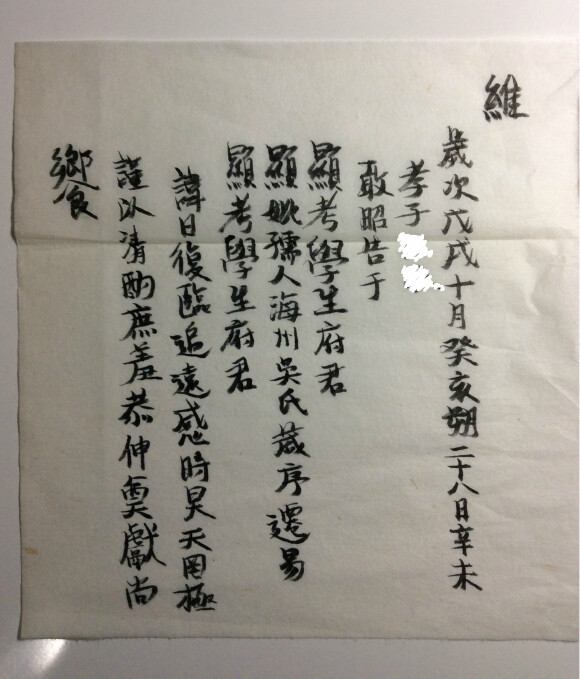 維
歲次戊戌十月癸亥朔二十八日辛未
孝子
敢昭告于
顯考學生府君
顯妣孺人海州吳氏歲序遷易
顯考學生府君
諱日復臨追遠感時昊天罔極
謹以清酌庶羞恭伸奠獻尚
饗